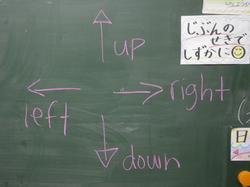 up
じぶんの
せきで
しずかに
left
right
down
日